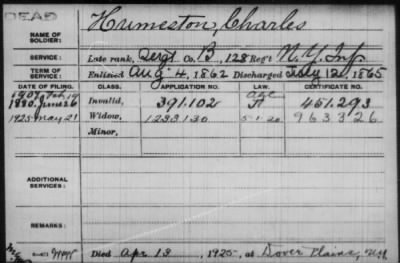 DEAD
Humeston, Charles
NAME OF SOLDIER:
SERVICE: Late rank, Sergt Co. B, 128 Reg't N.Y. Inf
TERM OF SERVICE: Enlisted Aug. 4, 1862 Discharged July 12, 1865
DATE OF FILING. CLASS. APPLICATION NO. LAW. CERTIFICATE NO.
1907 Feb Age
1880 June 26 Invalid, 391.102 451.293
1925 May 21 Widow, 1233130 5-1-20 963326
Minor,
ADDITIONAL SERVICES:
REMARKS:
Died Apr 13, 1925, at Dover Plains, N.Y.